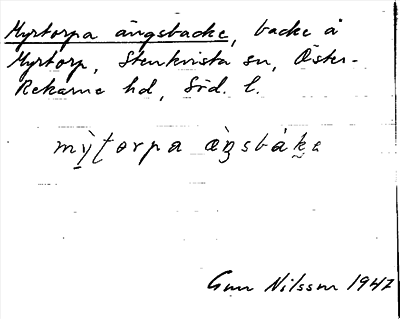 Myrtorpa ängsbacke, backe å
Myrtorp, Stenkvista sn, Öster-
Rekarne hd, Söd. l.
Gun Nilsson 1947